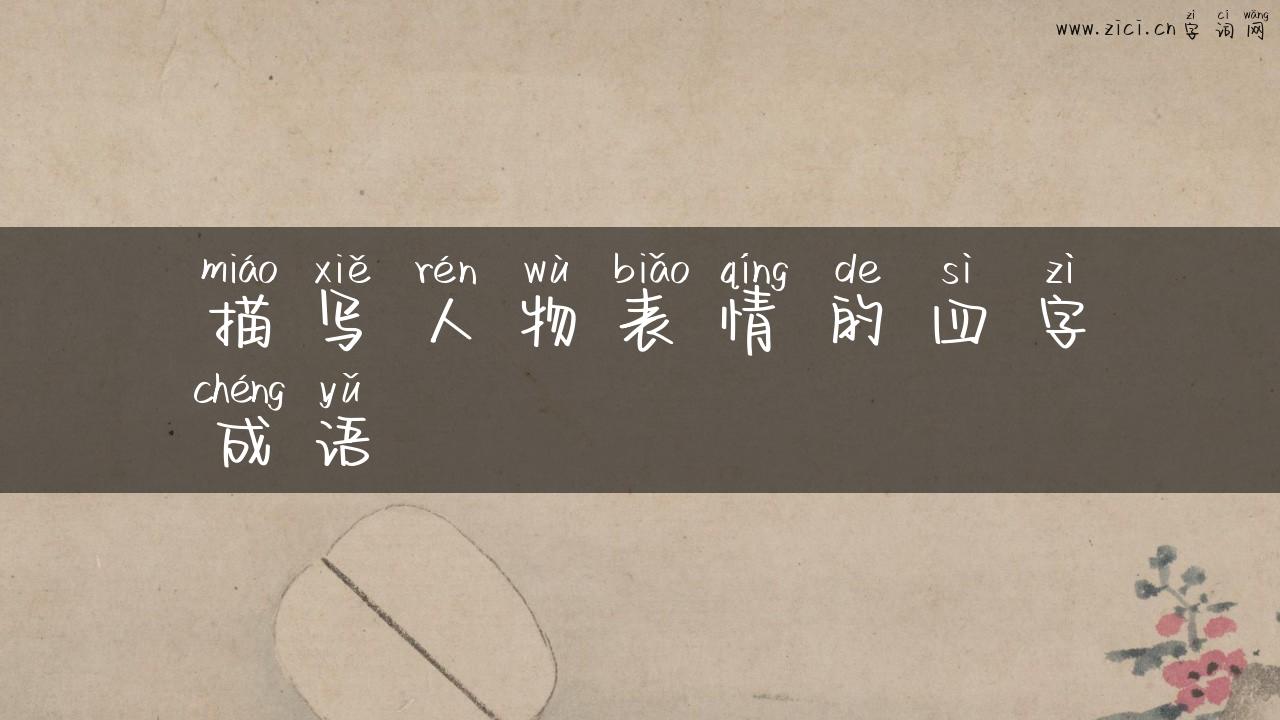 zì cí wǎng
www.zici.cn字词网
miáo xiě rén wù biǎo qíng de sì zì
描写人物表情的四字
chéng yǔ
成语